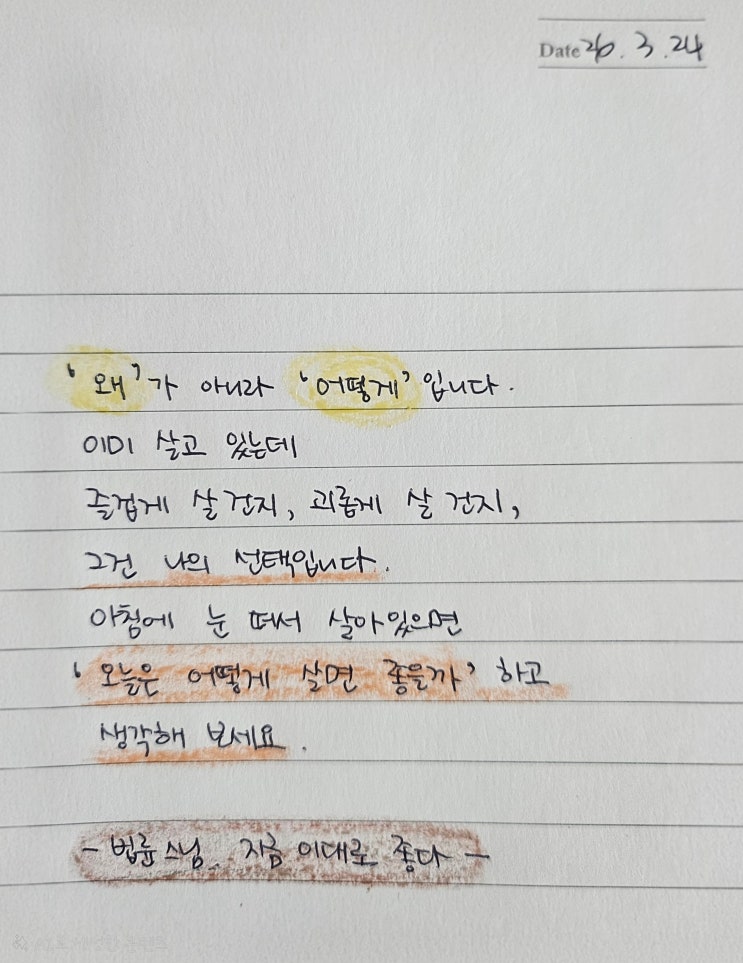 Date 26. 3. 24
'왜'가 아니라 '어떻게'입니다.
이미 살고 있는데
즐겁게 살 건지, 괴롭게 살 건지,
그건 나의 선택입니다.
아침에 눈 떠서 살아있으면
'오늘은 어떻게 살면 좋을까' 하고
생각해 보세요.
- 법륜스님. 지금 이대로 좋다 -